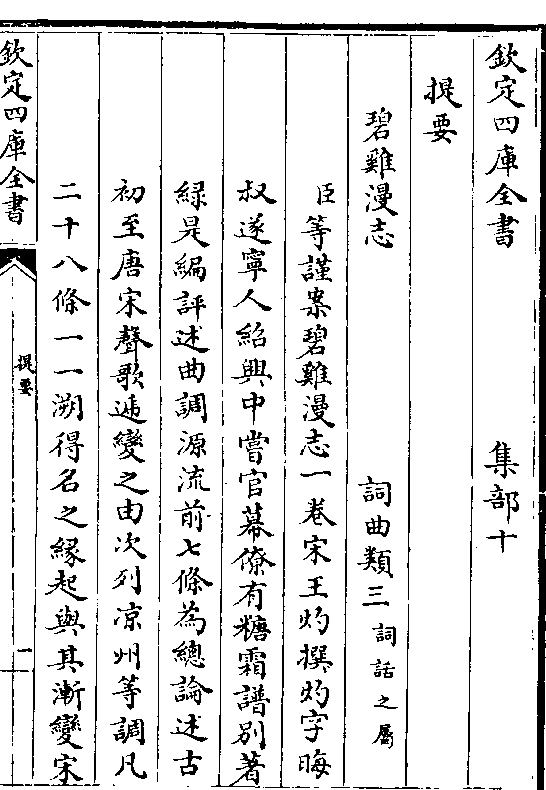 欽定四庫全書 集部十
提要
碧雞漫志 詞曲類三 詞話之屬
臣等謹案碧雞漫志一卷宋王灼撰灼字晦
叔遂寧人紹興中嘗官幕僚有糖霜譜别著
緑是編評述曲調源流前七條為總論述古
初至唐宋聲歌遞變之由次列凉州等調凡
二十八條一一溯得名之縁起與其漸變宋
欽定四庫全書
提要
一